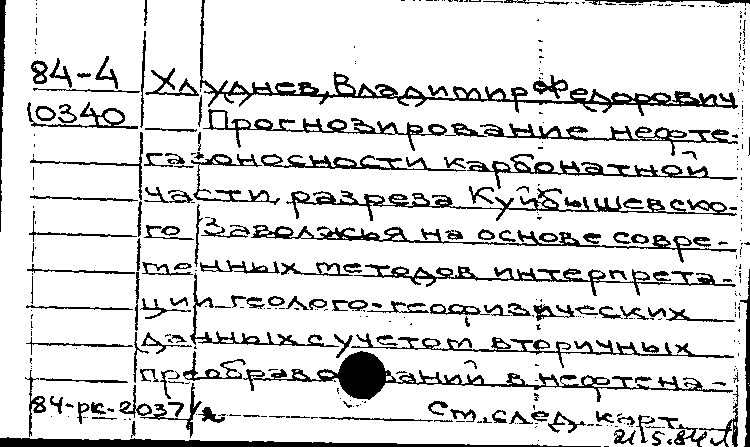 84-4 Хлуднев, Владимир Федорович
10340 Прогнозирование нефте-
газоносности карбонатной
части, разреза Куйбышевско-
го Заволжья на основе совре-
менных методов интерпрета-
ции геолого-геофизических
данных с учетом вторичных
преобразований в нефтена-
84-рк-2037 См. след. карт.